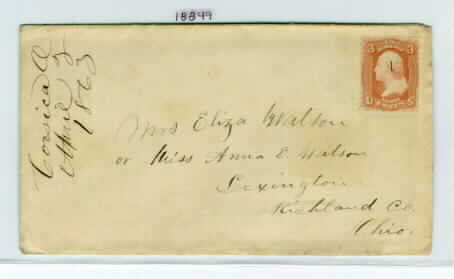 18399
Corsica O
April 3
1863
3 3
U S
Mrs Eliza Watson
or Miss Anna E. Watson
Lexington
Richland Co.
Ohio.